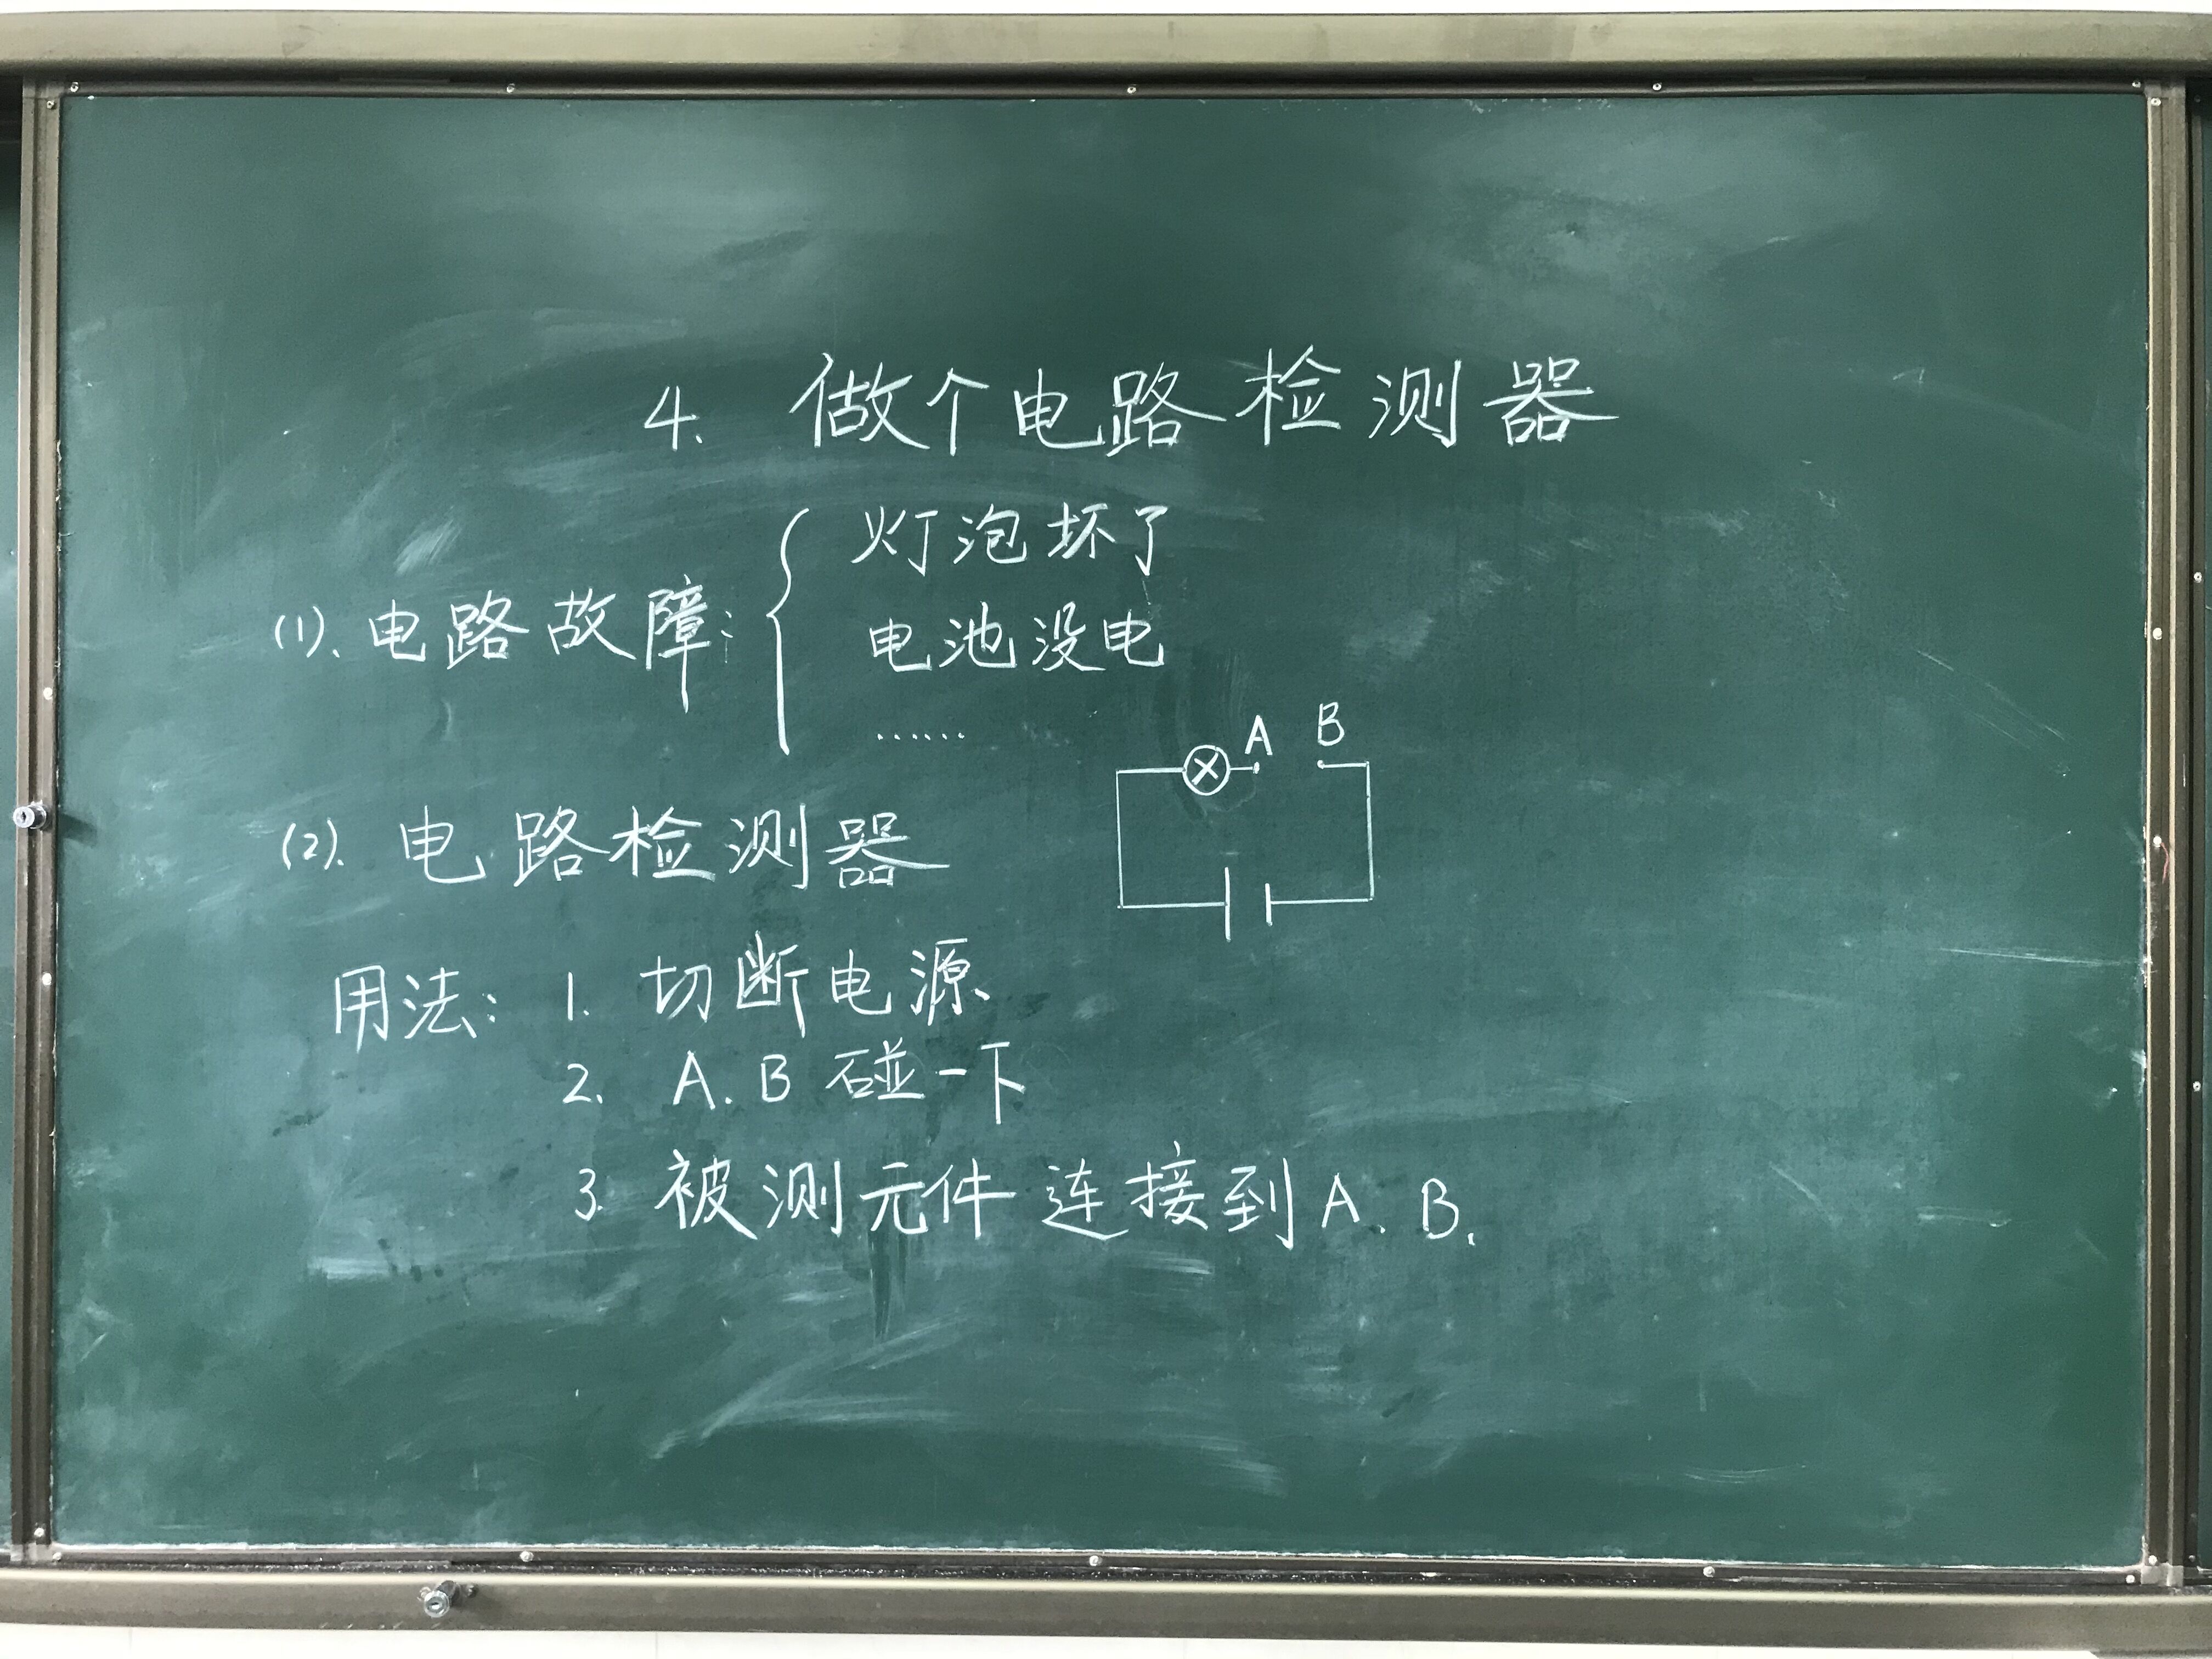 4. 做个电路检测器
灯泡坏了
(1). 电路故障:
电池没电
……
A B
(2). 电路检测器
用法: 1. 切断电源
2. A.B 碰一下
3. 被测元件连接到A、B.